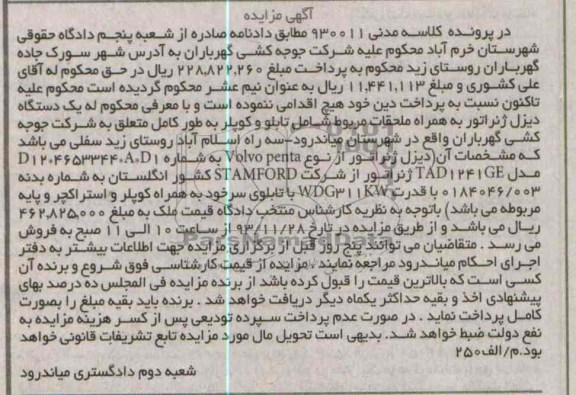 آگهی مزایده
در پرونده کلاسه مدنی ۹۳۰۰۱۱ مطابق دادنامه صادره از شعبه پنجم دادگاه حقوقی
شهرستان خرم آباد محکوم علیه شرکت جوجه کشی گهرباران به آدرس شهر سورک جاده
گهرباران روستای زید محکوم به پرداخت مبلغ ۲۲۸,۸۲۲,۲۶۰ ریال در حق محکوم له آقای
علی کشوری و مبلغ ۱۱,۴۴۱,۱۱۳ ریال به عنوان نیم عشر محکوم گردیده است محکوم علیه
تاکنون نسبت به پرداخت دین خود هیچ اقدامی ننموده است و با معرفی محکوم له یک دستگاه
دیزل ژنراتور به همراه ملحقات مربوط شامل تابلو و کوپلر به طور کامل متعلق به شرکت جوجه
کشی گهرباران واقع در شهرستان میاندرود-سه راه اسلام آباد روستای زید سفلی می باشد
که مشخصات آن(دیزل ژنراتور از نوع Volvo penta به شماره D۱۲۰۴۶۵۳۳۴۴۰A۰D۱
مدل TAD۱۲۴۱GE ژنراتور از شرکت STAMFORD کشور انگلستان به شماره بدنه
۰۱۸۴۰۴۶/۰۰۳ با قدرت WDG۳۱۱KW با تابلوی سرخود به همراه کوپلر و استراکچر و پایه
مربوطه می باشد) باتوجه به نظریه کارشناس منتخب دادگاه قیمت ملک به مبلغ ۴۶۲,۸۲۵,۰۰۰
ریال می باشد و از طریق مزایده در تاریخ ۹۳/۱۱/۲۸ از ساعت ۱۰ الی ۱۱ صبح به فروش
می رسد . متقاضیان می توانند پنج روز قبل از برگزاری مزایده جهت اطلاعات بیشتر به دفتر
اجرای احکام میاندرود مراجعه نمایند . مزایده از قیمت کارشناسی فوق شروع و برنده آن
کسی است که بالاترین قیمت را قبول کرده باشد از برنده مزایده فی المجلس ده درصد بهای
پیشنهادی اخذ و بقیه حداکثر یکماه دیگر دریافت خواهد شد . برنده باید بقیه مبلغ را بصورت
کامل پرداخت نماید . در صورت عدم پرداخت سپرده تودیعی پس از کسر هزینه مزایده به
نفع دولت ضبط خواهد شد. بدیهی است تحویل مال مورد مزایده تابع تشریفات قانونی خواهد
بود.م/الف۲۵۰
شعبه دوم دادگستری میاندرود